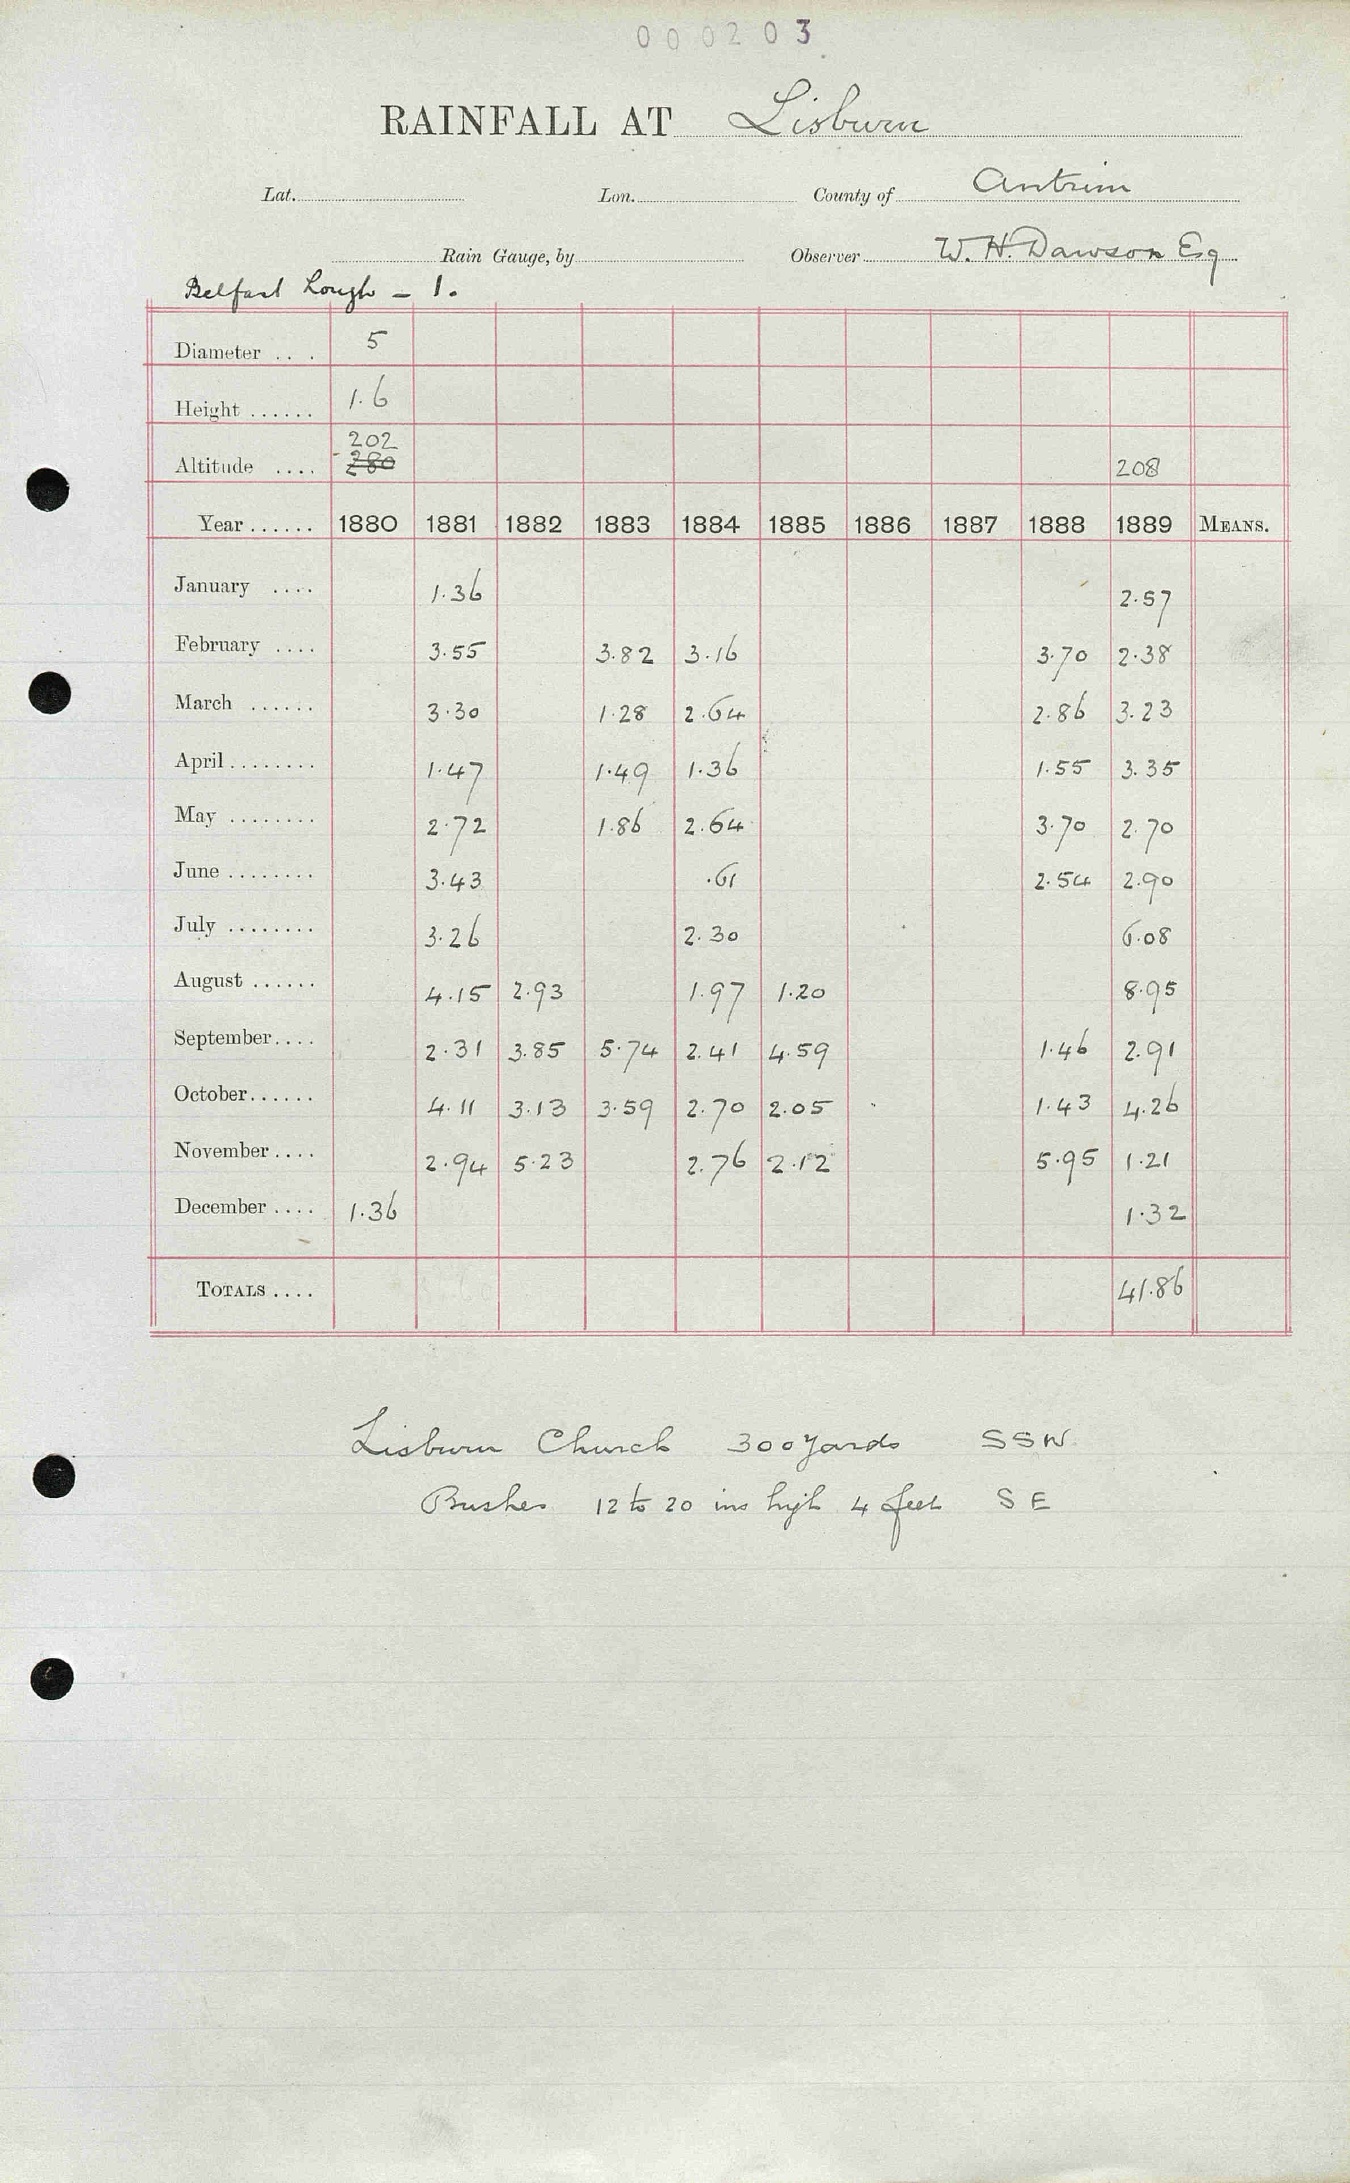 000203
RAINFALL AT Lisburn
Lat. Lon. County of Antrim
Rain Gauge, by Observer W. H. Dawson Esq
Belfast Lough - 1.
Diameter ... 5
Height ...... 1.6
202
Altitude .... 280 208
Year ...... 1880 1881 1882 1883 1884 1885 1886 1887 1888 1889 MEANS.
January .... 1.36 2.57
February .... 3.55 3.82 3.16 3.70 2.38
March ...... 3.30 1.28 2.64 2.86 3.23
April ........ 1.47 1.49 1.36 1.55 3.35
May ........ 2.72 1.86 2.64 3.70 2.70
June ........ 3.43 .61 2.54 2.90
July ........ 3.26 2.30 6.08
August ...... 4.15 2.93 1.97 1.20 8.95
September.... 2.31 3.85 5.74 2.41 4.59 1.46 2.91
October...... 4.11 3.13 3.59 2.70 2.05 1.43 4.26
November.... 2.94 5.23 2.76 2.12 5.95 1.21
December .... 1.36 1.32
TOTALS .... 41.86
Lisburn Church 300 yards SSW
Bushes 12 to 20 ins high 4 feet SE